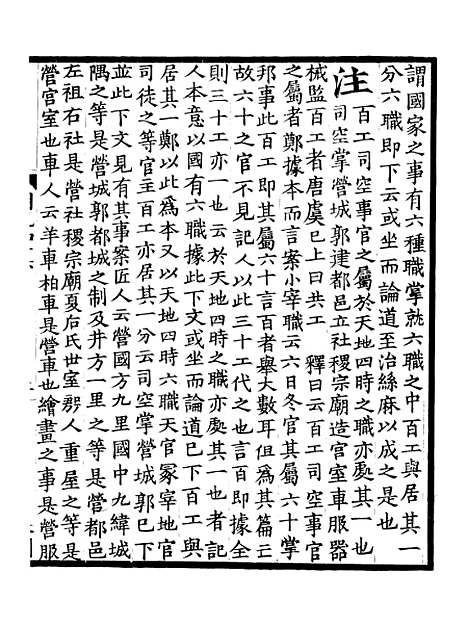 謂國家之事有六種職掌就六職之中百工與居其一
分六職即下云或坐而論道至治絲麻以成之是也
注百工司空事官之屬於天地四時之職亦處其一也
司空掌營城郭建都邑立社稷宗廟造宮室車服器
械監百工者唐虞已上曰共工 釋曰云百工司空事官
之屬者鄭據本而言案小宰職云六曰冬官其屬六十掌
邦事此百工即其屬六十言百者舉大數耳但為其篇亡
故六十之官不見記人以此三十工代之也言百即據全
則三十工亦一也云於天地四時之職亦處其一也者記
人本意以國有六職據此下文或坐而論道已下百工與
居其一鄭以此為本又以天地四時六職天官冢宰地官
司徒之等官主百工亦居其一分云司空掌營城郭已下
並此下文見有其事案匠人云營國方九里國中九緯城
隅之等是營城郭都城之制及井方一里之等是營都邑
左祖右社是營社稷宗廟夏后氏世室殷人重屋之等是
營宮室也車人云羊車柏車是營車也繪畫之事是營服